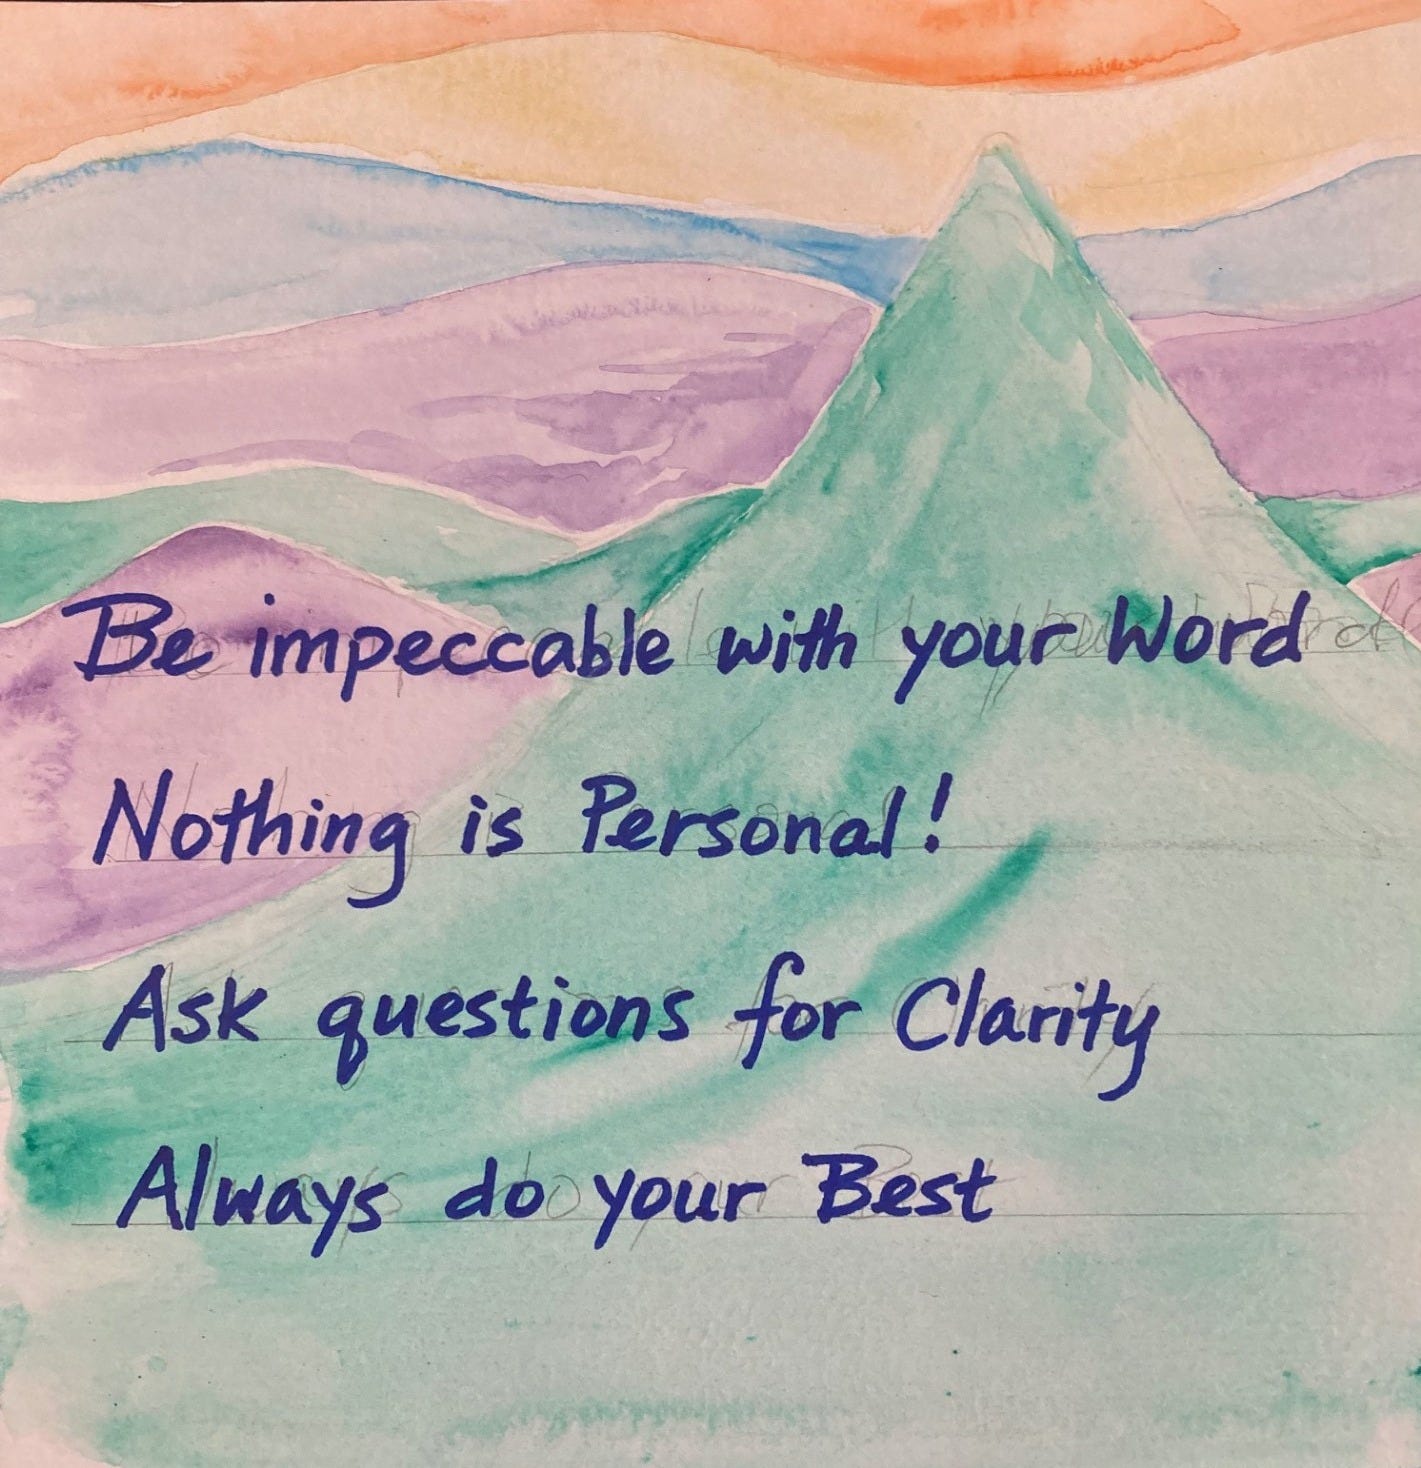 Be impeccable with your Word
Nothing is Personal!
Ask questions for Clarity
Always do your Best